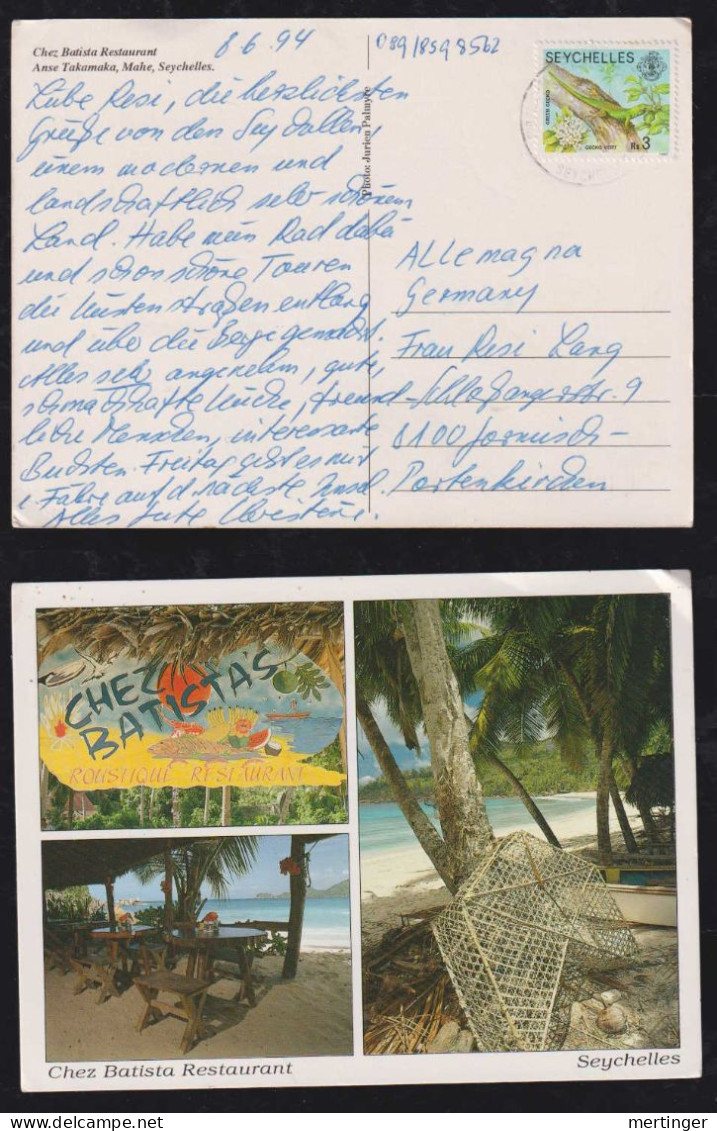 Chez Batista Restaurant
Anse Takamaka, Mahe, Seychelles.
8.6.94
089/8598562
SEYCHELLES
GREEN GECKO
GECKO VERT
Rs.3
Photo: Jurien Palmyre
Liebe Resi, die herzlichsten
Grüße von den Seychellen,
einem modernen und
landschaftlich sehr schönem
Land. Habe mein Rad dabei
und schon schöne Touren
die Küstenstraßen entlang
und über die Berge gemacht.
Alles sehr angenehm, gute,
schmackhafte Küche, freund-
liche Menschen, interessante
Buchten. Freitag geht es mit
Fähre auf d. nächste Insel.
Alles Gute
Allemagna
Germany
Frau Resi Lang
9
8100 Garmisch-
Partenkirchen
CHEZ
BATISTA'S
ROUSTIQUE RESTAURANT
Chez Batista Restaurant
Seychelles
mertinger